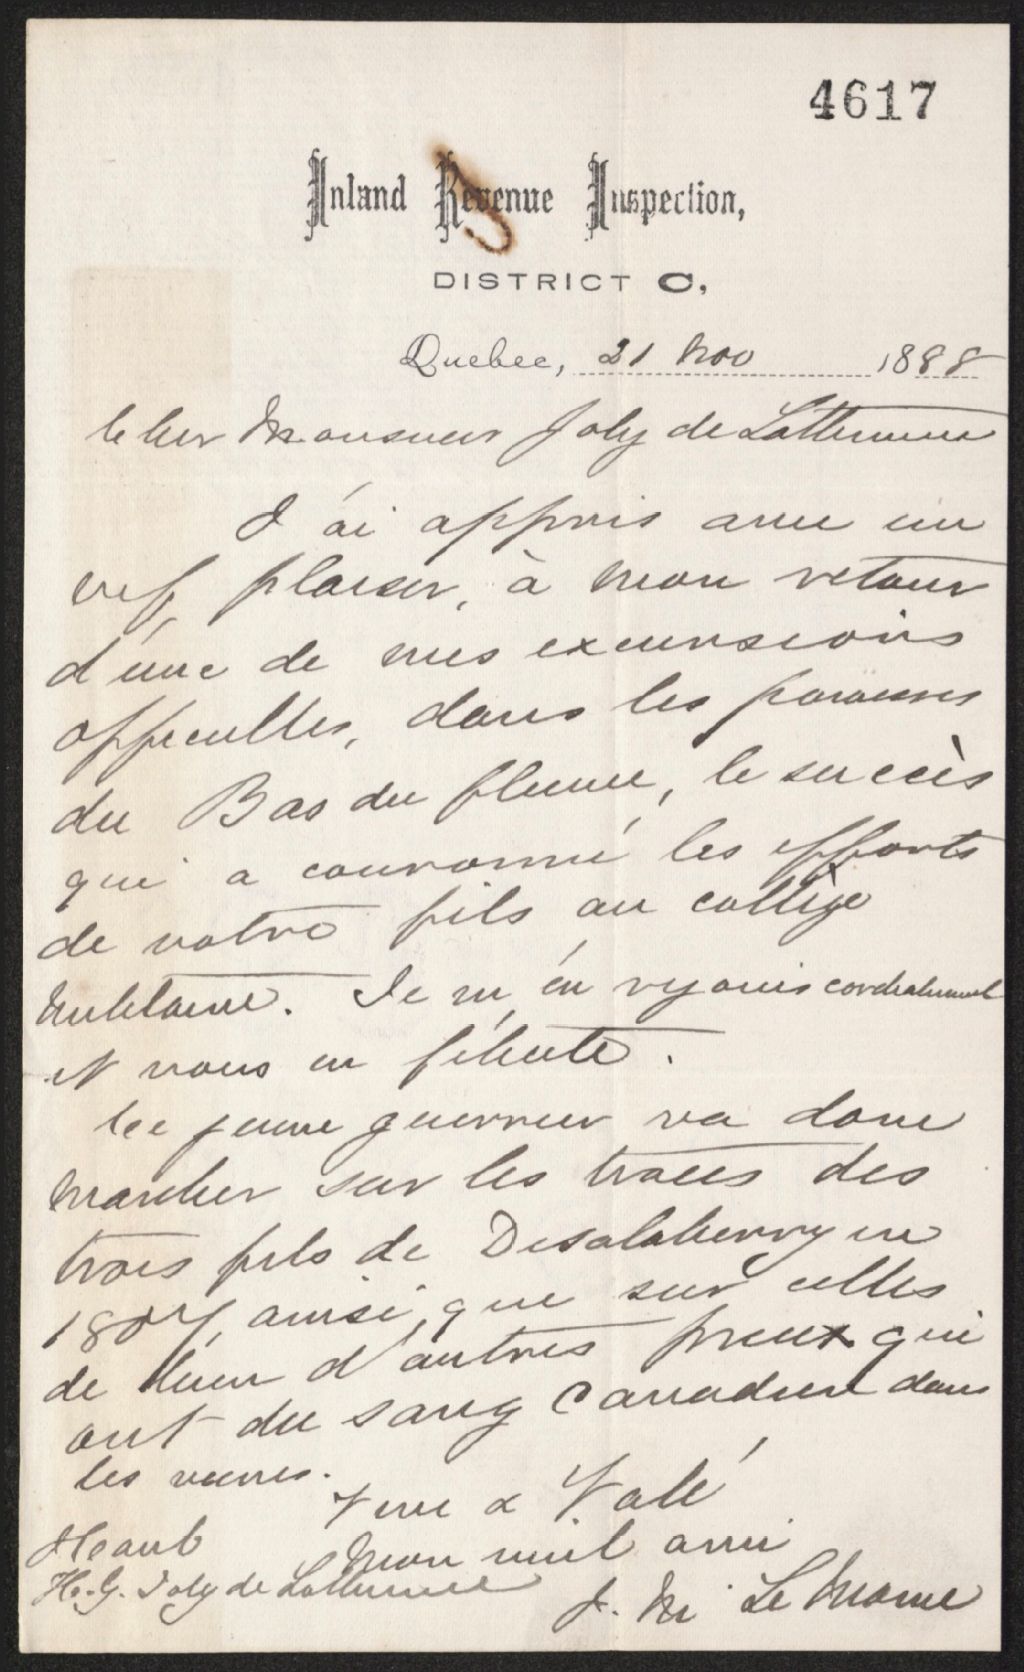 4617
Inland Revenue Inspection,
DISTRICT C,
Quebec, 21 Nov 1888
Cher Monsieur Joly de Lotbiniere
J'ai appris avec un
vif plaisir, à mon retour
d'une de mes excursions
officielles, dans les paroisses
du Bas du fleuve, le succès
qui a couronné les efforts
de votre fils au collège
Militaire. Je m'en rejouis cordialement
et vous en félicite.
Ce jeune guerrier va donc
marcher sur les traces des
trois fils de Desalaberry en
1807, ainsi que sur celles
de bien d'autres preux qui
ont du sang Canadien dans
les veines.
Vive & Valé
Mon vieil ami
J. M. Le Moine
H. G. Joly de Lotbiniere